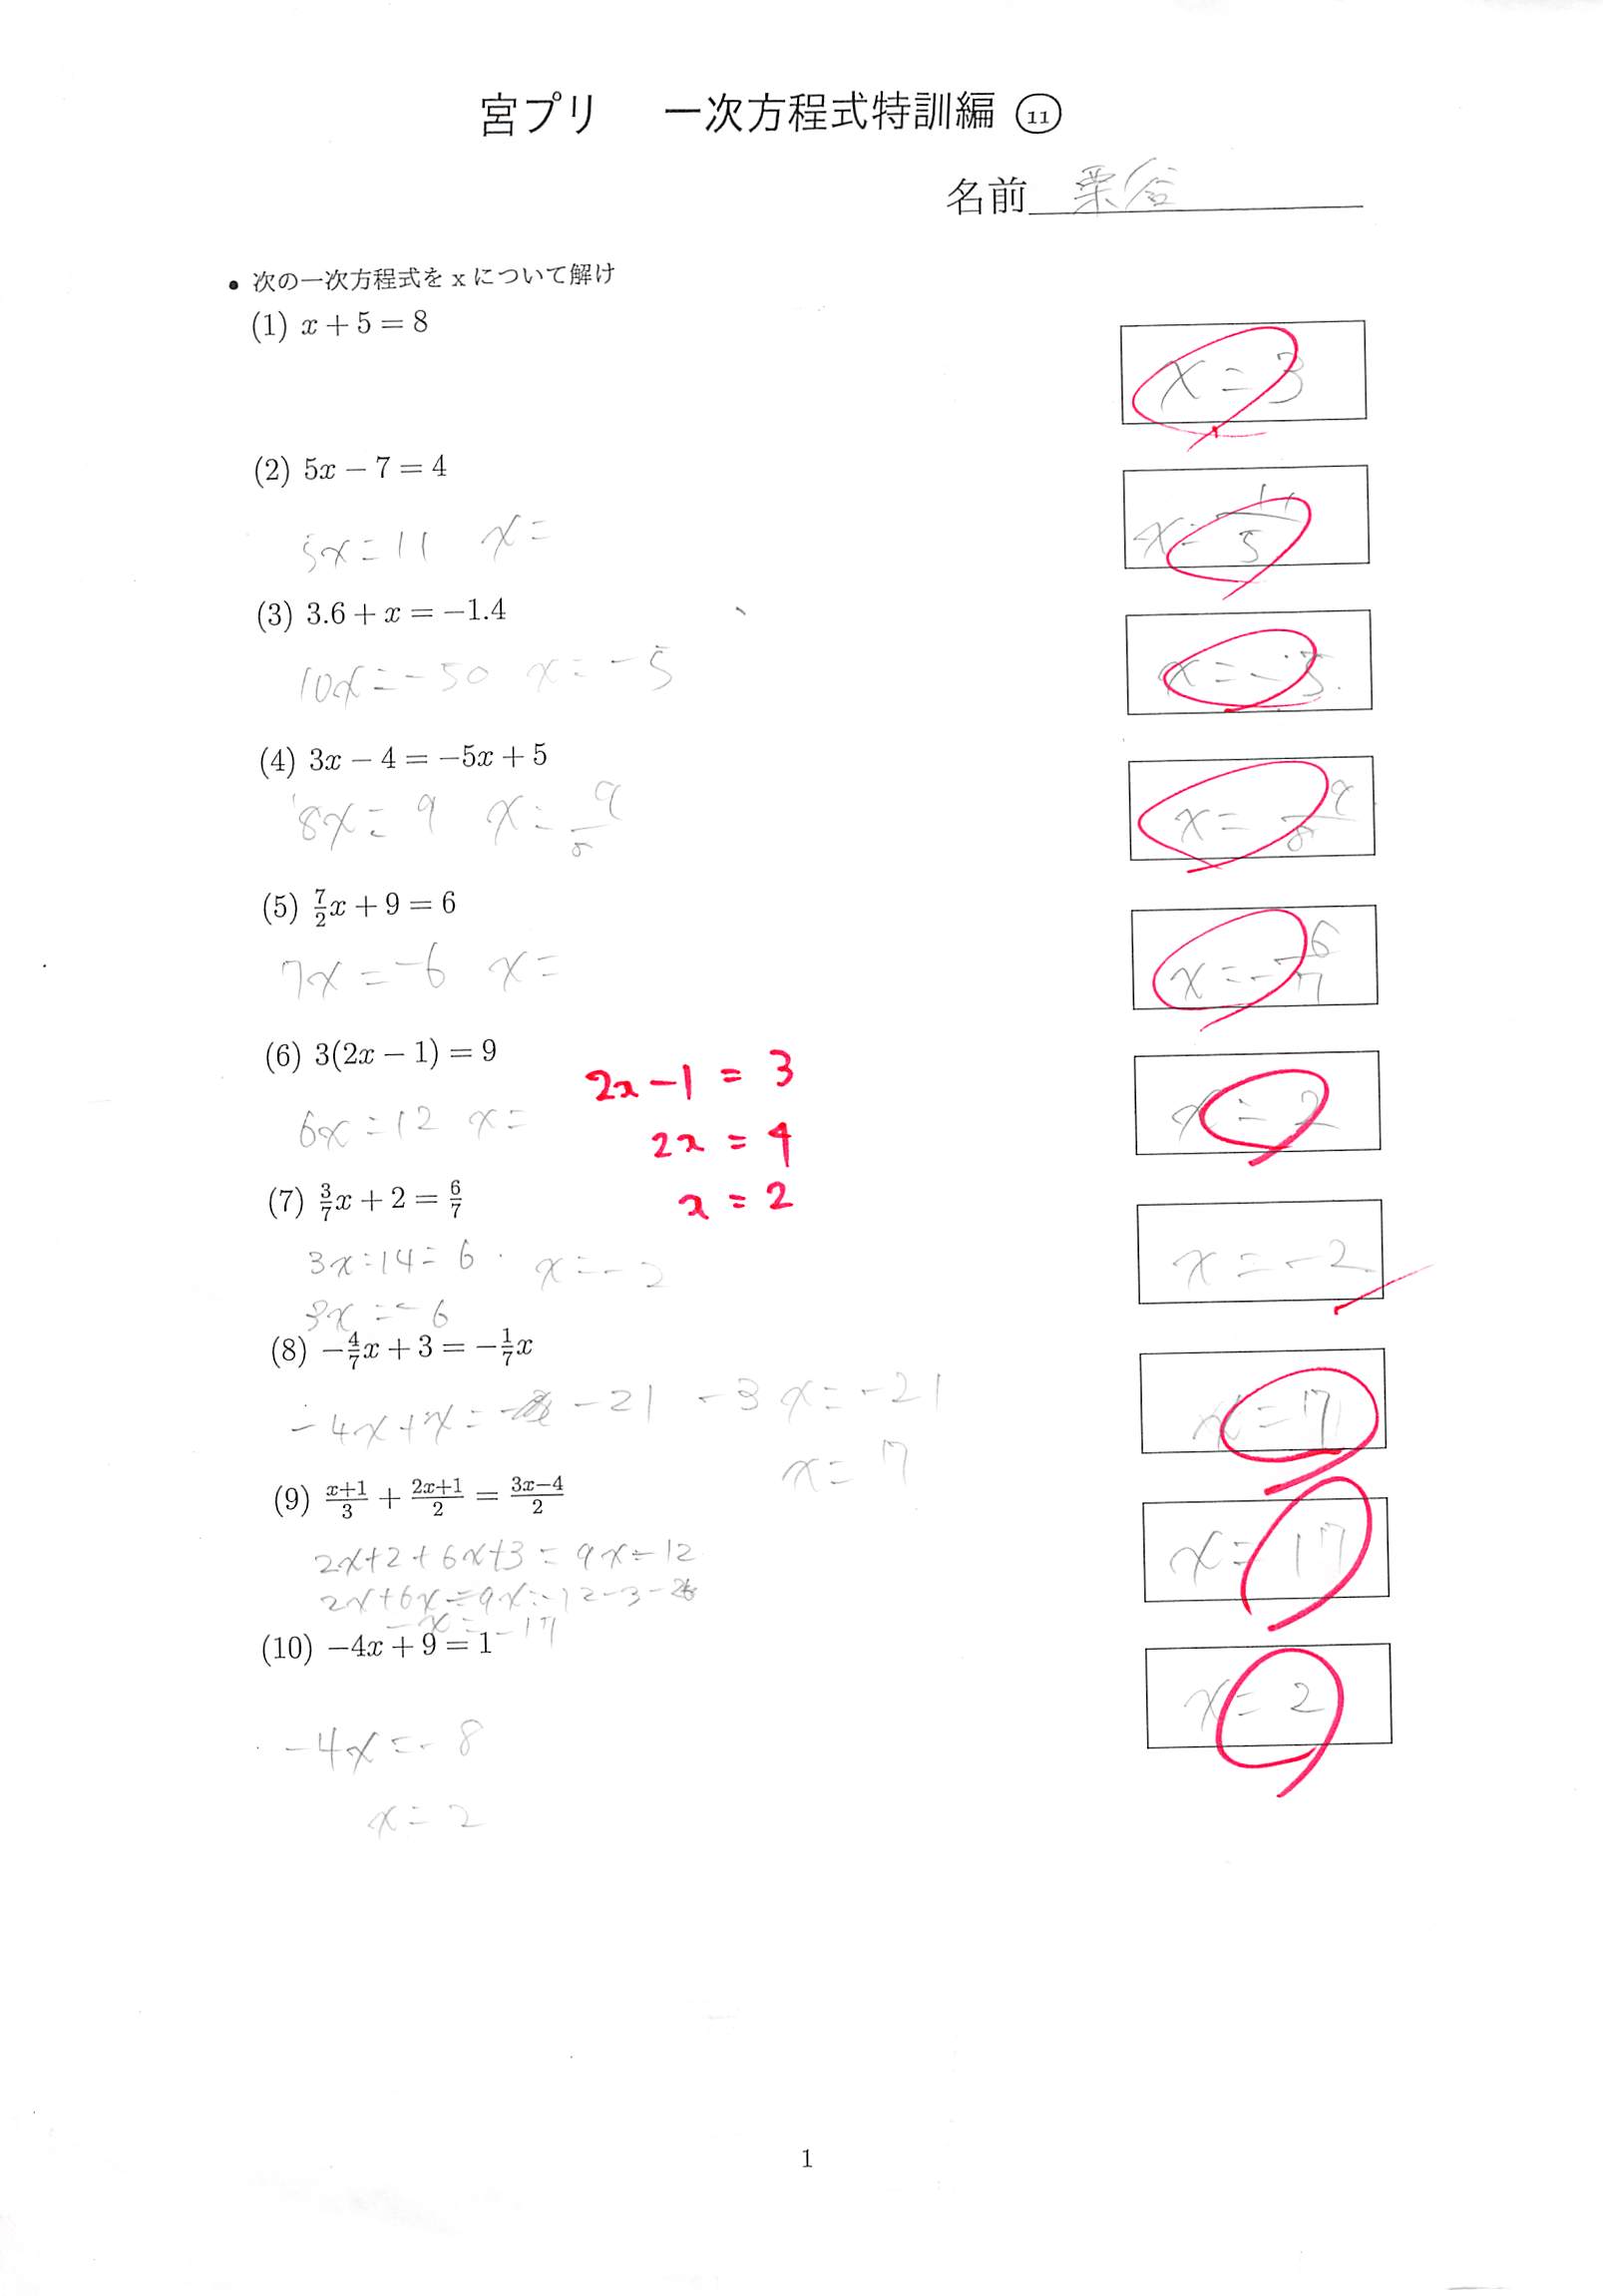 宮プリ 一次方程式特訓編 ⑪
名前 栗谷
• 次の一次方程式を x について解け
(1) x + 5 = 8
x = 3
(2) 5x − 7 = 4
5x = 11 x =
x = 11/5
(3) 3.6 + x = −1.4
10x = −50 x = −5
x = −5.
(4) 3x − 4 = −5x + 5
8x = 9 x = 9/8
x = 9/8
(5) 7/2x + 9 = 6
7x = −6 x =
x = −6/7
(6) 3(2x − 1) = 9
6x = 12 x =
2x − 1 = 3
2x = 4
x = 2
x = 2
(7) 3/7x + 2 = 6/7
3x = 14 = 6 x = −2
3x = −6
x = −2
(8) −4/7x + 3 = −1/7x
−4x + x = −21 −3x = −21
x = 7
x = 7
(9) x+1/3 + 2x+1/2 = 3x−4/2
2x+2+6x+3 = 9x−12
2x+6x−9x=−12−3−2
−x = −17
x = 17
(10) −4x + 9 = 1
−4x = −8
x = 2
x = 2
1